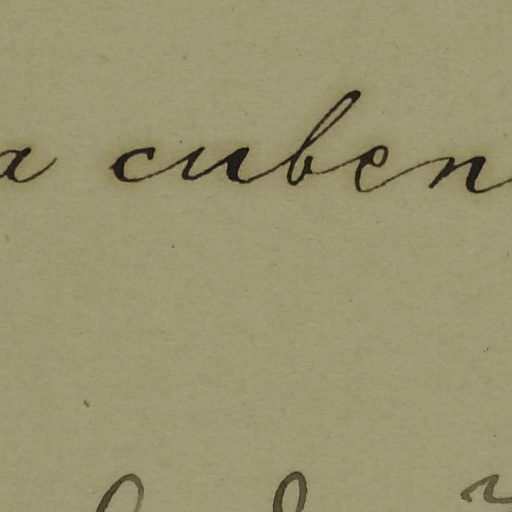 a cuben